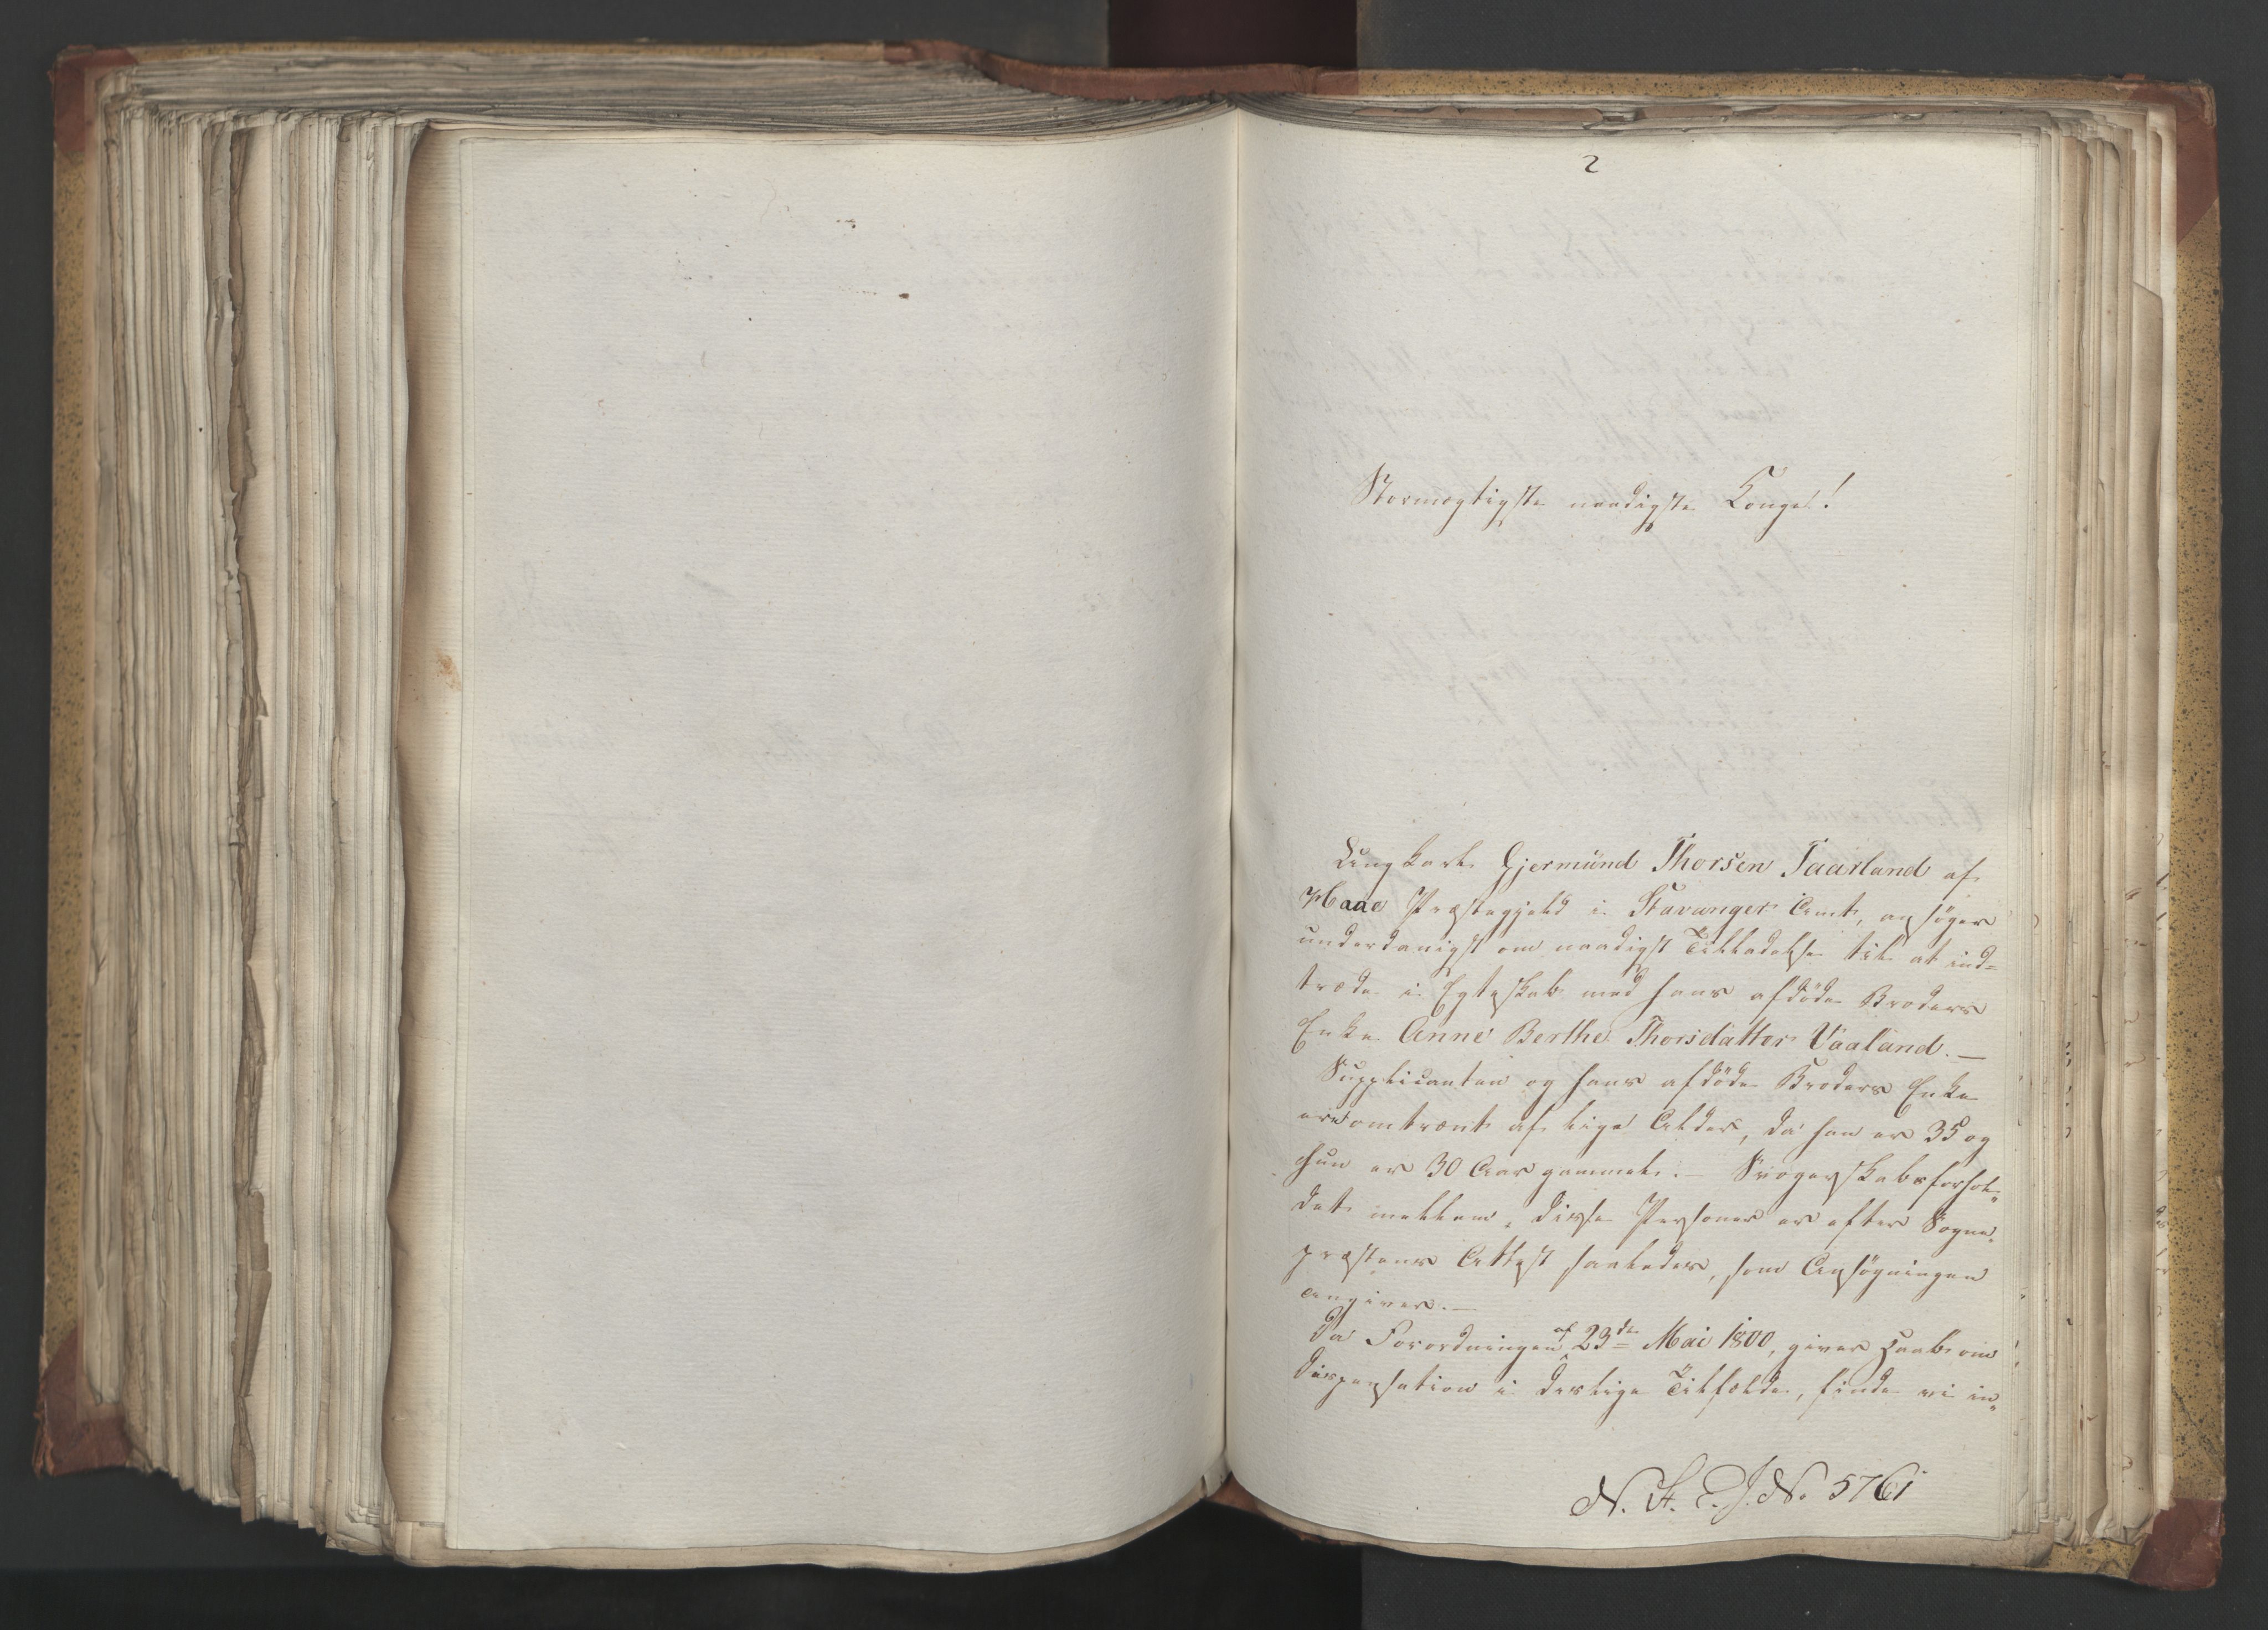 2
Stormægtigste naadigste Konge!
Ungkarl Gjermünd Thorsen Taarland af
Haae Præstegjeld i Stavanger Amt, ansøger
underdanigst om naadigst Tilladelse til at ind=
træde i Egteskab med hans afdöde Broders
Enke Anne Berthe Thorsdatter Vaaland. —
Supplicanten og hans afdöde Broders Enke
ere omtrent af lige Alder, da han er 35 og
hun er 30 Aar gammel. — Svogerskabsforhol„
det mellem disse Personer er efter Sogne„
præstens Attest saaledes, som Ansögningen
angiver. —
Da Forordningen af 23de Mai 1800, giver Haab om
Dispensation i deslige Tilfælde, finde vi in„
N. A. E. J. No 5761